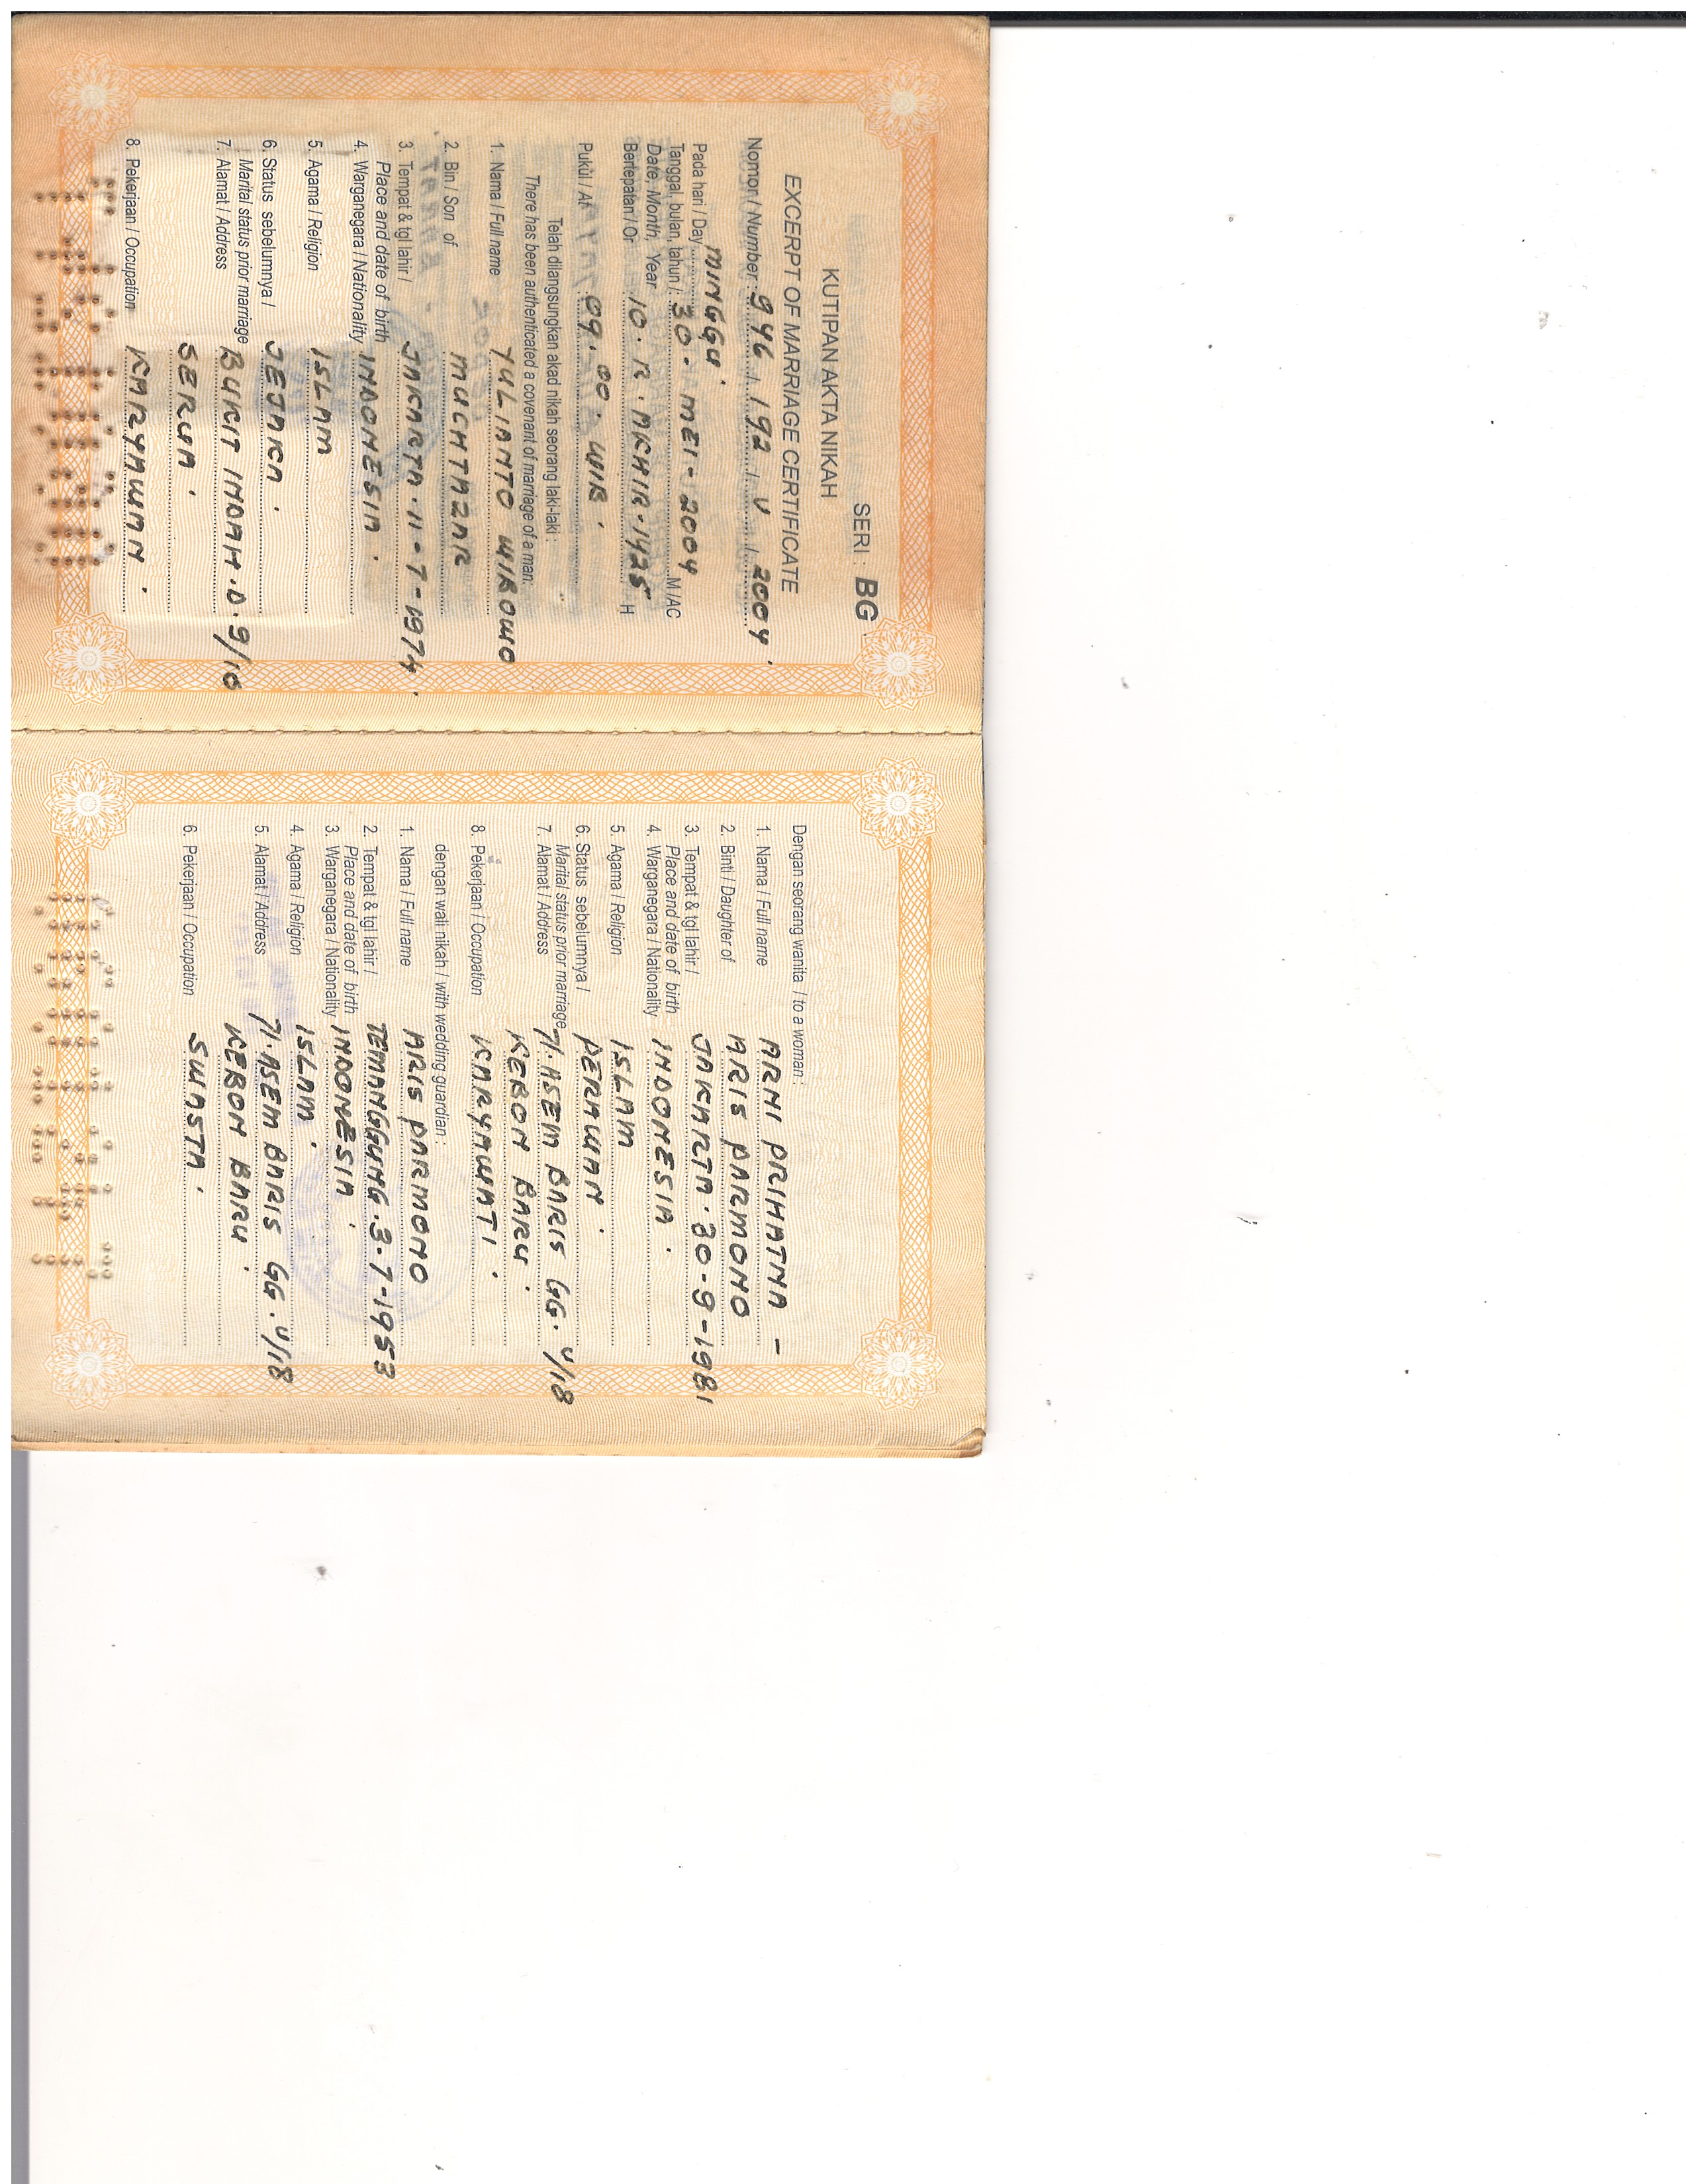 SERI : BG
KUTIPAN AKTA NIKAH
EXCERPT OF MARRIAGE CERTIFICATE
Nomor / Number : 946 / 192 / V / 2004.
Pada hari / Day MINGGU.
Tanggal, bulan, tahun / : 30 - MEI - 2004 M / AC
Date, Month, Year
Bertepatan / Or : 10. R. AKHIR. 1425 H
Pukul / At : 09.00. WIB.
Telah dilangsungkan akad nikah seorang laki-laki :
There has been authenticated a covenant of marriage of a man:
1. Nama / Full name YULIANTO WIBOWO
2. Bin / Son of MUCHTAZAR
3. Tempat & tgl lahir / JAKARTA. 11 - 7 - 1974.
Place and date of birth
4. Warganegara / Nationality INDONESIA.
5. Agama / Religion ISLAM
6. Status sebelumnya / JEJAKA.
Marital status prior marriage
7. Alamat / Address BUKIT INDAH. D. 9/10
SERUA.
8. Pekerjaan / Occupation KARYAWAN.
Dengan seorang wanita / to a woman :
1. Nama / Full name ARNI PRIHATNA -
2. Binti / Daughter of ARIS PARMONO
3. Tempat & tgl lahir / JAKARTA. 30 - 9 - 1981
Place and date of birth
4. Warganegara / Nationality INDONESIA.
5. Agama / Religion ISLAM
6. Status sebelumnya / PERAWAN.
Marital status prior marriage
7. Alamat / Address 71. ASEM BARIS GG. V/18
KEBON BARU.
8. Pekerjaan / Occupation KARYAWATI.
dengan wali nikah / with wedding guardian :
1. Nama / Full name ARIS PARMONO
2. Tempat & tgl lahir / TEMANGGUNG. 3. 7 - 1953
Place and date of birth
3. Warganegara / Nationality INDONESIA.
4. Agama / Religion ISLAM.
5. Alamat / Address 71. ASEM BARIS GG. V/18
KEBON BARU.
6. Pekerjaan / Occupation SWASTA.